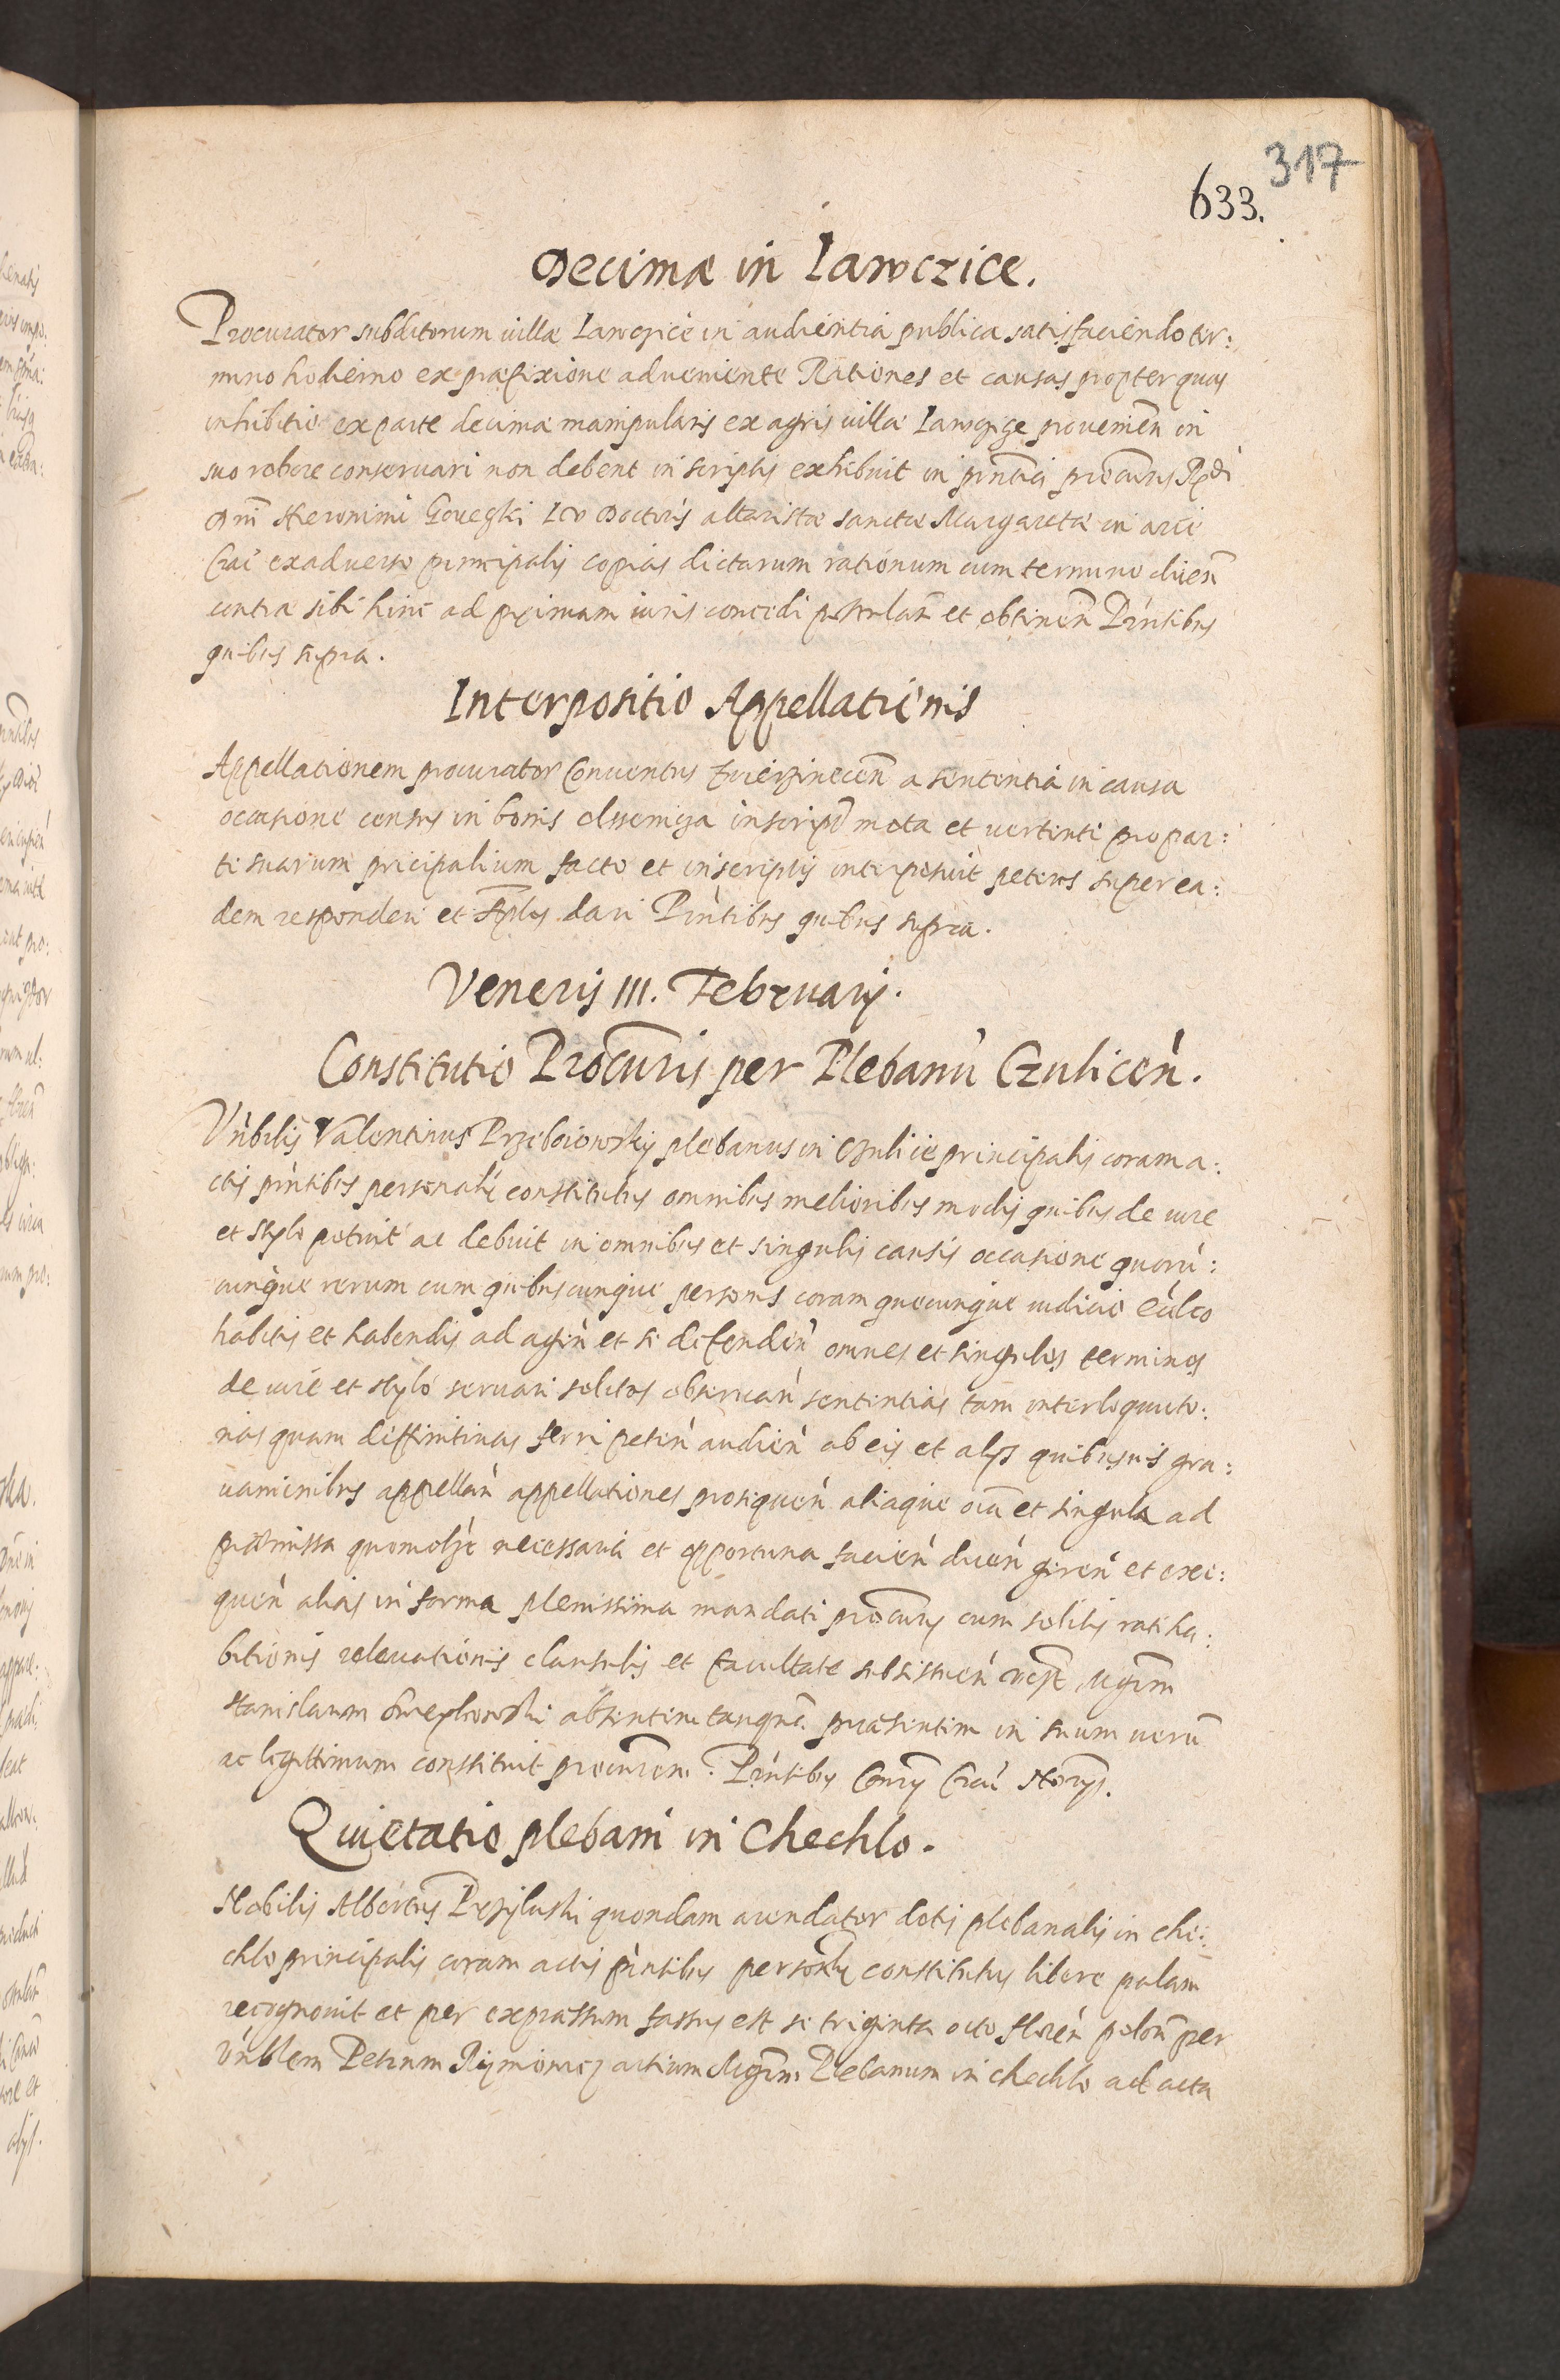 317
633.
Decimæ in Iawczice.
Procurator subditorum uillæ Iawczice in audientia publica satisfaciendo ter:
mino hodierno ex præfixione adueniente Rationes et causas propter quas
inhibitio ex parte decimæ manipularis ex agris uillæ Iawczice prouenien in
suo robore conseruari non debent in scriptis exhibuit in pntia procuris Rdi
Dni Hieronimi Goreczki IV Doctoris altaristæ Sanctæ Margaretæ in arce
Crac ex aduerso principalis copias dictarum rationum cum termino dicen
contra sibi hinc ad proximam iuris concedi postulan et obtinen Pntibus
quibus supra.
Interpositio Appellationis
Appellationem procurator Conuentus Zwierzinecen a sententia in causa
occasione census in bonis inscript mota et uertenti pro par:
te suarum pricipalium facto et in scriptis interposuit petens super ea:
dem responderi et Aplos dari Pntibus quibus supra.
Veneris III. Februarij.
Constitutio Procuris per Plebanu Czulicen.
Vnbilis Valentinus Przeboiowskij plebanus in Czulice principalis coram a:
ctis pntibus personalr constitutus omnibus melioribus modis quibus de iure
et stylo potuit ac debuit in omnibus et singulis causis occasione quoru:
cunque rerum cum quibuscunque personis coram quocunque iudicio eccleo
habitis et habendis ad agen et se defenden omnes et singulos terminos
de iure et stylo seruari solitos obseruan sententias tam interloquuto:
rias quam diffinitiuas ferri peten audien ab eis et alijs quibusuis gra:
uaminibus appellan appellationes prosequen aliaque oia et singula ad
præmissa quomolt necessaria et opportuna facien dicen geren et exe:
quen alias in forma plenissima mandati procuris cum solitis ratiha:
bitionis releuationis clausulis et facultate substituen Mgrm
Stanislaum absentem tanqua præsentem in suum ueru
ac legittimum constituit procurem. Pntibus Crac Notarijs.
Quietatio plebani in Chechlo.
Nobilis Albertus Przyluski quondam arendator dotis plebanalis in che:
chlo principalis coram actis pntibus personalr constitutus libere palam
recognouit et per expressum fassus est se triginta octo floren polon per
Vnblem Petrum Rymiowicz artium Mgrm Plebanum in chechlo ad acta